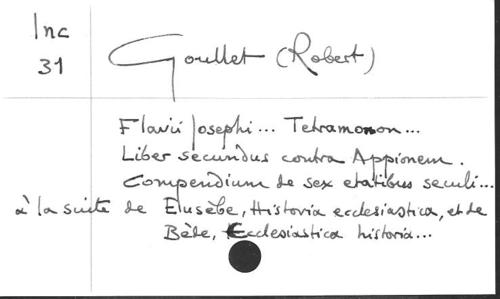 Inc
31
Goullet (Robert)
Flavii Josephi... Tetramonon...
Liber secundus contra Appionem.
Compendium de sex etatibus seculi...
à la suite de Eusèbe, Historia ecclesiastica, et de
Bède, Ecclesiastica historia...